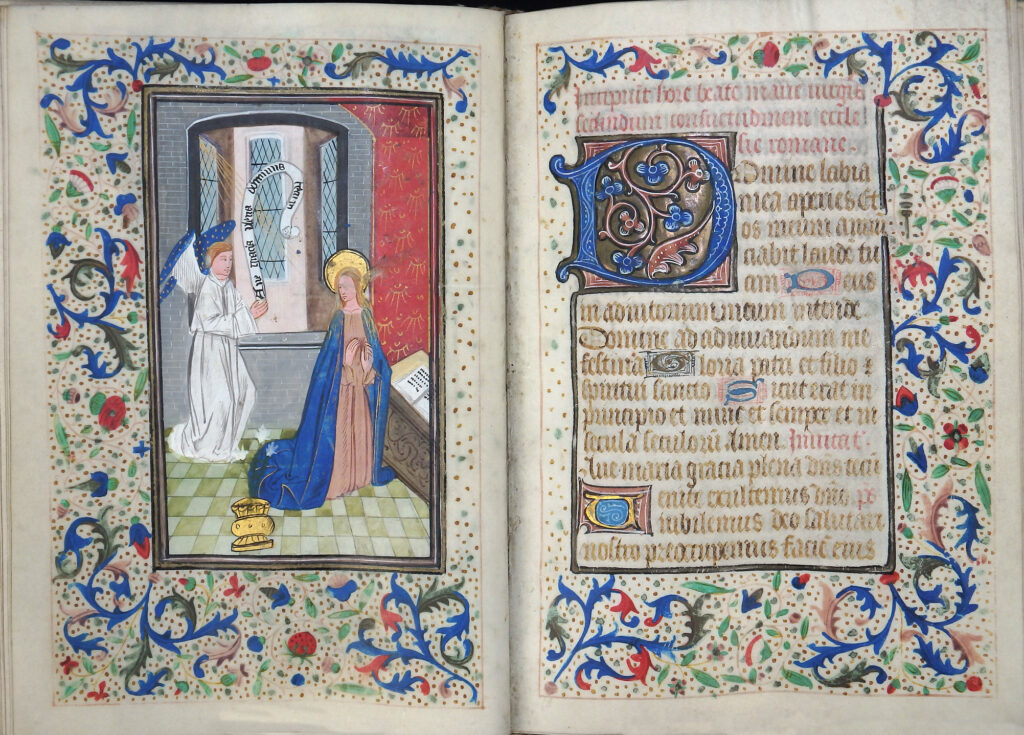 Aue gracia plena dominus tecum
Incipiunt hore beate marie uirgis
secundum consuetudinem eccle
sie romane.
Domine labia
mea aperies Et
os meum annun
ciabit laudē tu
am Deus
in adiutorium meum intende
Domine ad adiuuandum me
festina Gloria patri et filio ⁊
spiritui sancto Sicut erat in
principio et nunc et semper et in
secula seculorū amen. Inuitat.
Aue maria gracia plena dn̄s tecū
Uenite exultemus dn̄o ps
iubilemus deo salutari
nostro preocupemus faciē eius